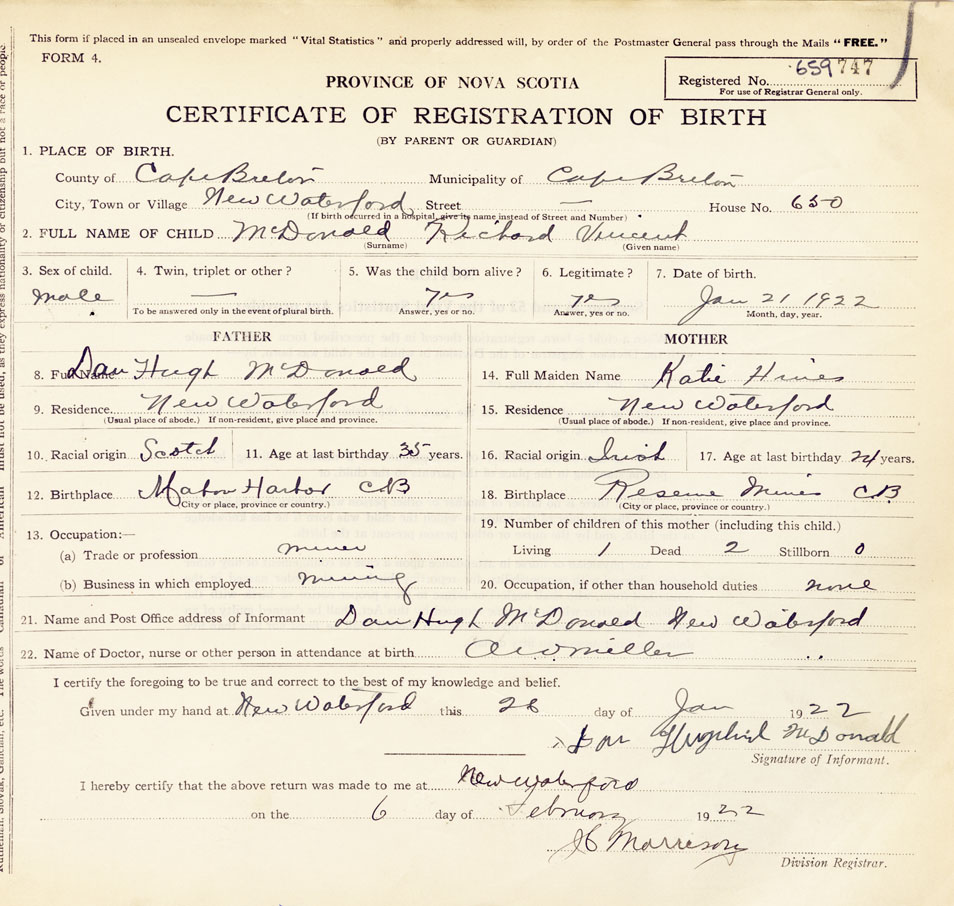 This form if placed in an unsealed envelope marked "Vital Statistics" and properly addressed will, by order of the Postmaster General pass through the Mails "FREE."
FORM 4.
Registered No. 659747
For use of Registrar General only.
PROVINCE OF NOVA SCOTIA
CERTIFICATE OF REGISTRATION OF BIRTH
(BY PARENT OR GUARDIAN)
1. PLACE OF BIRTH.
County of Cape Breton Municipality of Cape Breton
City, Town or Village New Waterford Street — House No. 650
(If birth occurred in a hospital, give its name instead of Street and Number)
2. FULL NAME OF CHILD McDonald Richard Vincent
(Surname) (Given name)
3. Sex of child. 4. Twin, triplet or other? 5. Was the child born alive? 6. Legitimate? 7. Date of birth.
male — yes yes Jan 21 1922
To be answered only in the event of plural birth. Answer, yes or no. Answer, yes or no. Month, day, year.
FATHER MOTHER
8. Full Name Dan Hugh McDonald 14. Full Maiden Name Katie Hines
9. Residence New Waterford 15. Residence New Waterford
(Usual place of abode.) If non-resident, give place and province. (Usual place of abode.) If non-resident, give place and province.
10. Racial origin Scotch 11. Age at last birthday 35 years. 16. Racial origin Irish 17. Age at last birthday 24 years.
12. Birthplace Mabou Harbor CB 18. Birthplace Reserve Mines CB
(City or place, province or country.) (City or place, province or country.)
13. Occupation:— 19. Number of children of this mother (including this child.)
(a) Trade or profession miner Living 1 Dead 2 Stillborn 0
(b) Business in which employed mining 20. Occupation, if other than household duties none
21. Name and Post Office address of Informant Dan Hugh McDonald New Waterford
22. Name of Doctor, nurse or other person in attendance at birth Miller
I certify the foregoing to be true and correct to the best of my knowledge and belief.
Given under my hand at New Waterford this 28 day of Jan 1922
Dan McDonald
Signature of Informant.
I hereby certify that the above return was made to me at New Waterford
on the 6 day of February 1922
Morrison
Division Registrar.